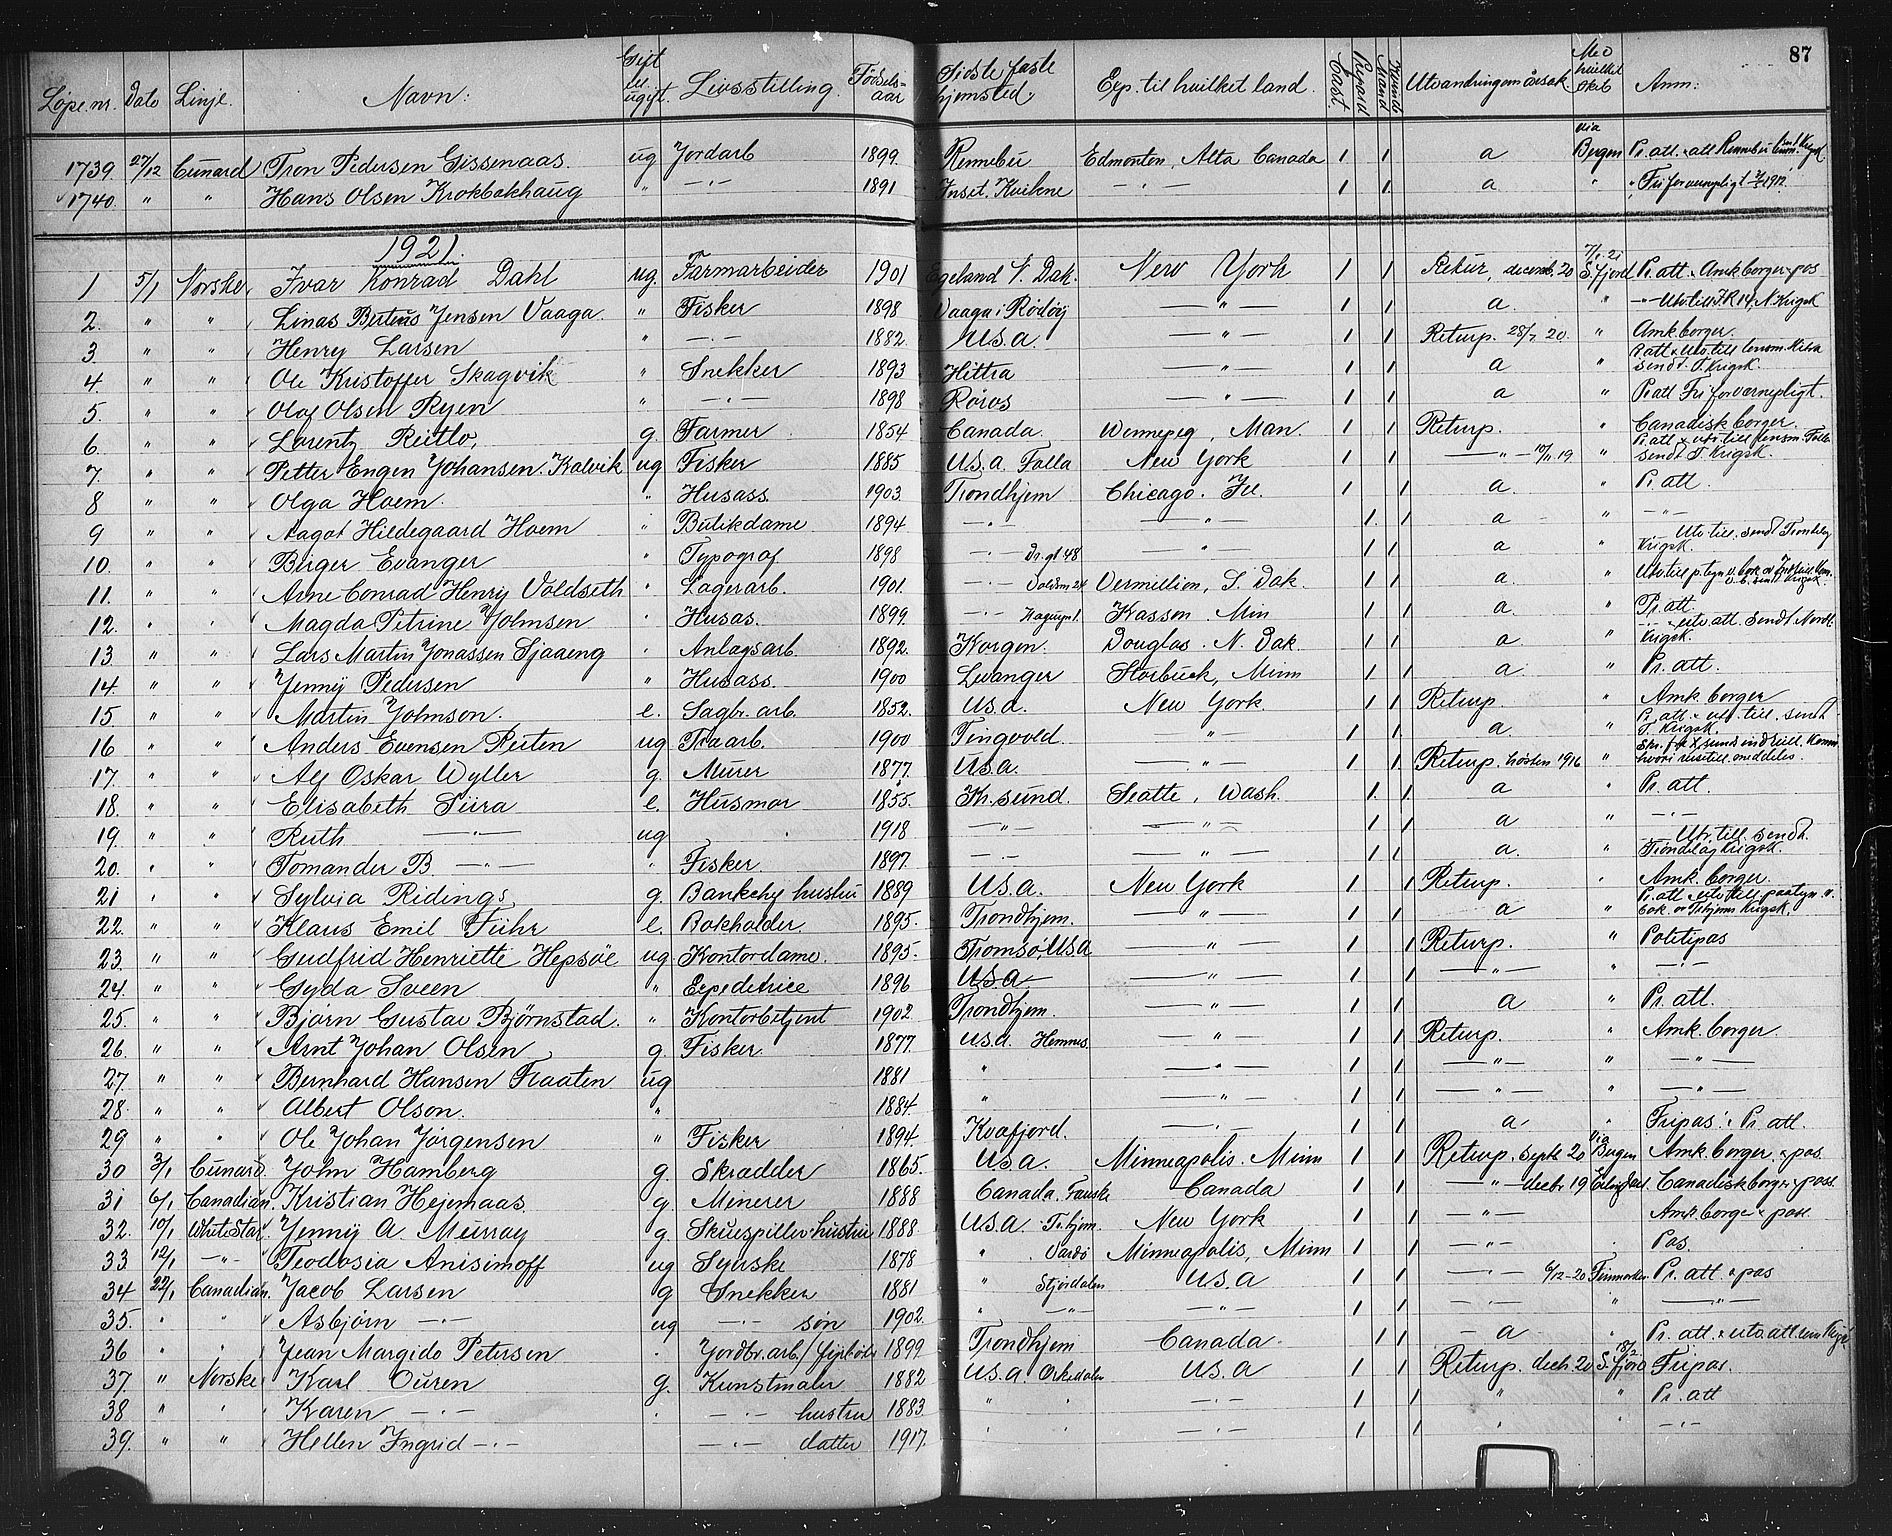 87
Løpe nr. Dato Linje. Navn: Gift el. ugift. Livsstilling Fødselsaar Sidste faste hjemsted. Exp. til hvilket land. Utvandringens årsak Med hvilket skib Anm:
1739. 27/12 Cunard Tron Pedersen Gissenaas. ug Jordarb 1899. Rennebu Edmonton, Alta Canada 1 1 a via Bergen Pr. att. Rennebu
1740. " " Hans Olsen Krokbakhaug " -"- 1891 Inset. Kvikne -"- 1 1. a " Fri for vernepligt 1917.
1921.
1 5/1 Norske Ivar Konrad Dahl ug. Farmarbeider 1901 Egeland N. Dak. New York 1 1 Retur, decemb. 20 7/1-21 S.fjord Pr. att. Amk borger pas
2. " " Linas Berteus Jensen Vaaga. " Fisker 1898 Vaaga i Rødøy -"- 1 1 a " -"- Utv. till I.R 14, N. Krigsk
3 " " Henry Larsen " -"- 1882. U.S.a. -"- 1 1 Returp. 28/7 20. " Amk borger.
4. " " Ole Kristoffer Skagvik " Snekker 1893 Hittra -"- 1 1 a " Pr. att. Utv. till lensm. Hitra sendt T. Krigsk.
5. " " Olaf Olsen Ryen " -"- 1898 Røros -"- 1 1 a " Pr att Fri for vernepligt.
6. " " Lorentz Reitlo, g. Farmer 1854 Canada. Winnepeg, Man. 1 1 Returp. " Canadisk borger.
7. " " Petter Engen Johansen Kalvik ug Fisker 1885 U.S.a Folla New York 1 1 -"- 10/11 19 " Pr. att utv. till lensm. Folla sendt T. Krigsk.
8 " " Olga Hoem " Husass 1903. Trondhjem Chicago. Ill. 1 1 a. " Pr. att.
9 " " Aagot Hildegaard Hoem " Butikdame 1894 -"- -"- 1. 1 a - " -"-
10. " " Birger Evanger " Typograf 1898 -"- Dr. gt 48 -"- 1 1 a " Utv. till. sendt Trondelag Krigsk.
11. " " Arne Conrad Henry Voldseth " Lagerarb. 1901. -"- Voldsm 24 Vermillion, S. Dak. 1 1 a. "
12. " " Magda Petrine Johnsen " Husas. 1899. -"- Kasson. Min 1 1 a. " Pr. att.
13. " " Lars Martin Jonassen Sjaaeng " Anlagsarb. 1892. Korgen. Douglas. N. Dak. 1 1 a. " -"- utv. att. sendt Nordl. Krigsk.
14. " " Jenny Pedersen " Husass. 1900 Levanger Starbuck, Minn 1 1 a. " Pr. att.
15 " " Martin Johnson. e. Sagbr. arb. 1852. U.S.a. New York 1 1 Returp. " Amk. borger
16 " " Anders Evensen Reiten ug Traarb. 1900 Tingvold. -"- 1 1. a. " Pr. att. utv. till. sendt T. Krigsk.
17. " " Alf Oskar Wyller g. Murer 1877. U.S.a. -"- 1 1 Returp. høsten 1916 "
18. " " Elisabeth Siira e. Husmor 1855. Kr. sund. Seatte, Wash. 1. 1. a " Pr. att.
19. " " Ruth -"- ug 1918 -"- -"- 1 1 a " -"-
20. " " Tomander B -"- " Fisker. 1897. -"- -"- 1 1 a. " -"- Utv. till. sendt Trondelag Krigsk.
21 " " Sylvia Ridings g. Bankchef hustru 1889 U.S.a. New York 1 1 Returp. " Amk. borger.
22. " " Klaus Emil Führ e. Bokholder 1895. Trondhjem. -"- 1 1 a "
23. " " Gudfrid Henriette Hepsøe ug Kontordame. 1895. Tromsø, U.S.a -"- 1 1 Returp. " Politipas
24. " " Gyda Sveen " Expeditrice 1896 U.S.a -"- 1 1 -"- " -"-
25. " " Bjarn Gustav Björnstad. " Kontorbetjent 1902. Trondhjem. -"- 1 1 a " Pr. att.
26. " " Arnt Johan Olsen g. Fisker 1877. U.S.a. Hemnes. -"- 1 1 Returp. " Amk. borger.
27. " " Bernhard Hansen Flaaten ug 1881 " -"- 1 1 -"- " -"-
28. " " Albert Olson. " 1884. " -"- 1 1 -"- " -"-
29 " " Ole Johan Jørgensen " Fisker 1894. Kvafjord. -"- 1 1 a " Fripas. Pr. att.
30 3/1 Cunard. John Hamberg g. Skradder 1865. U.S.a. Minneapolis. Minn 1 1 Returp. septr 20 via Bergen Amk. borger, pas
31 6/1 Canadian. Kristian Hejemaas. g. Minerer 1888 Canada. Fauske Canada 1 1 -"- decbr 19 Canadisk borger pass
32. 10/1 White Star. Jenny A. Murray g Skuespiller hustru 1888. U.S.a. Tr.hjem. New York 1 1 -"- Amk. borger pass.
33 12/1 -"- Teodosia Anisimoff ug Syerske 1878 " Vardø Minneapolis, Minn 1 1 -"- Pas.
34 22/1 Canadian. Jacob Larsen g Snekker 1881 " Stjørdalen U.S.a 1 1 -"- 6/12-20 Finmarken. Pr. att. pas
35. " " Asbjørn -"- ug -"- søn 1902. " -"- -"- 1 1 -"- " -"-
36 " " Jean Margido Petersen " Jordbr. arb./fyrbøder 1899 Trondhjem Canada. 1 1 - a " Pr. att. utv. att.
37. " Norske Karl Ouren g. Kunstmaler 1882 U.S.a. Orkedalen U.S.a 1 1 Returp. decb. 20 18/2 S.fjord Fripas.
38 " " Karen -"- " -"- hustru 1883. " " -"- 1 1 " " Pr. att
39. " " Hellen Ingrid -"- -"- datter 1917. " " -"- 1 1 " " -"-